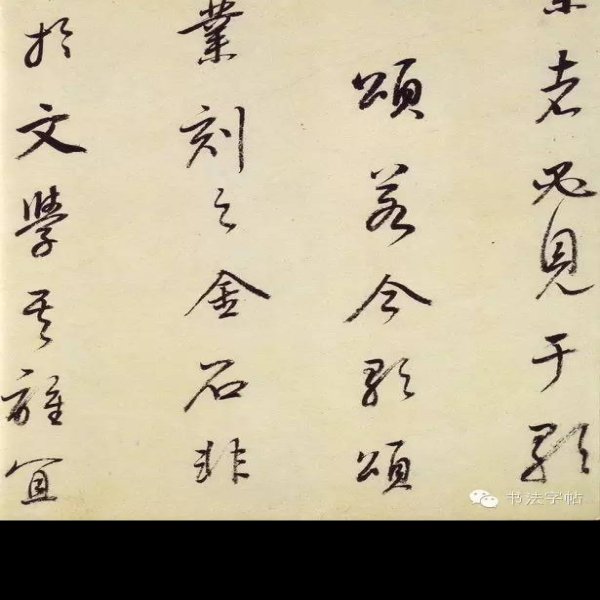 者必見于歌
頌若今歌頌
業刻之金石非
於文學其誰宜
书法字帖